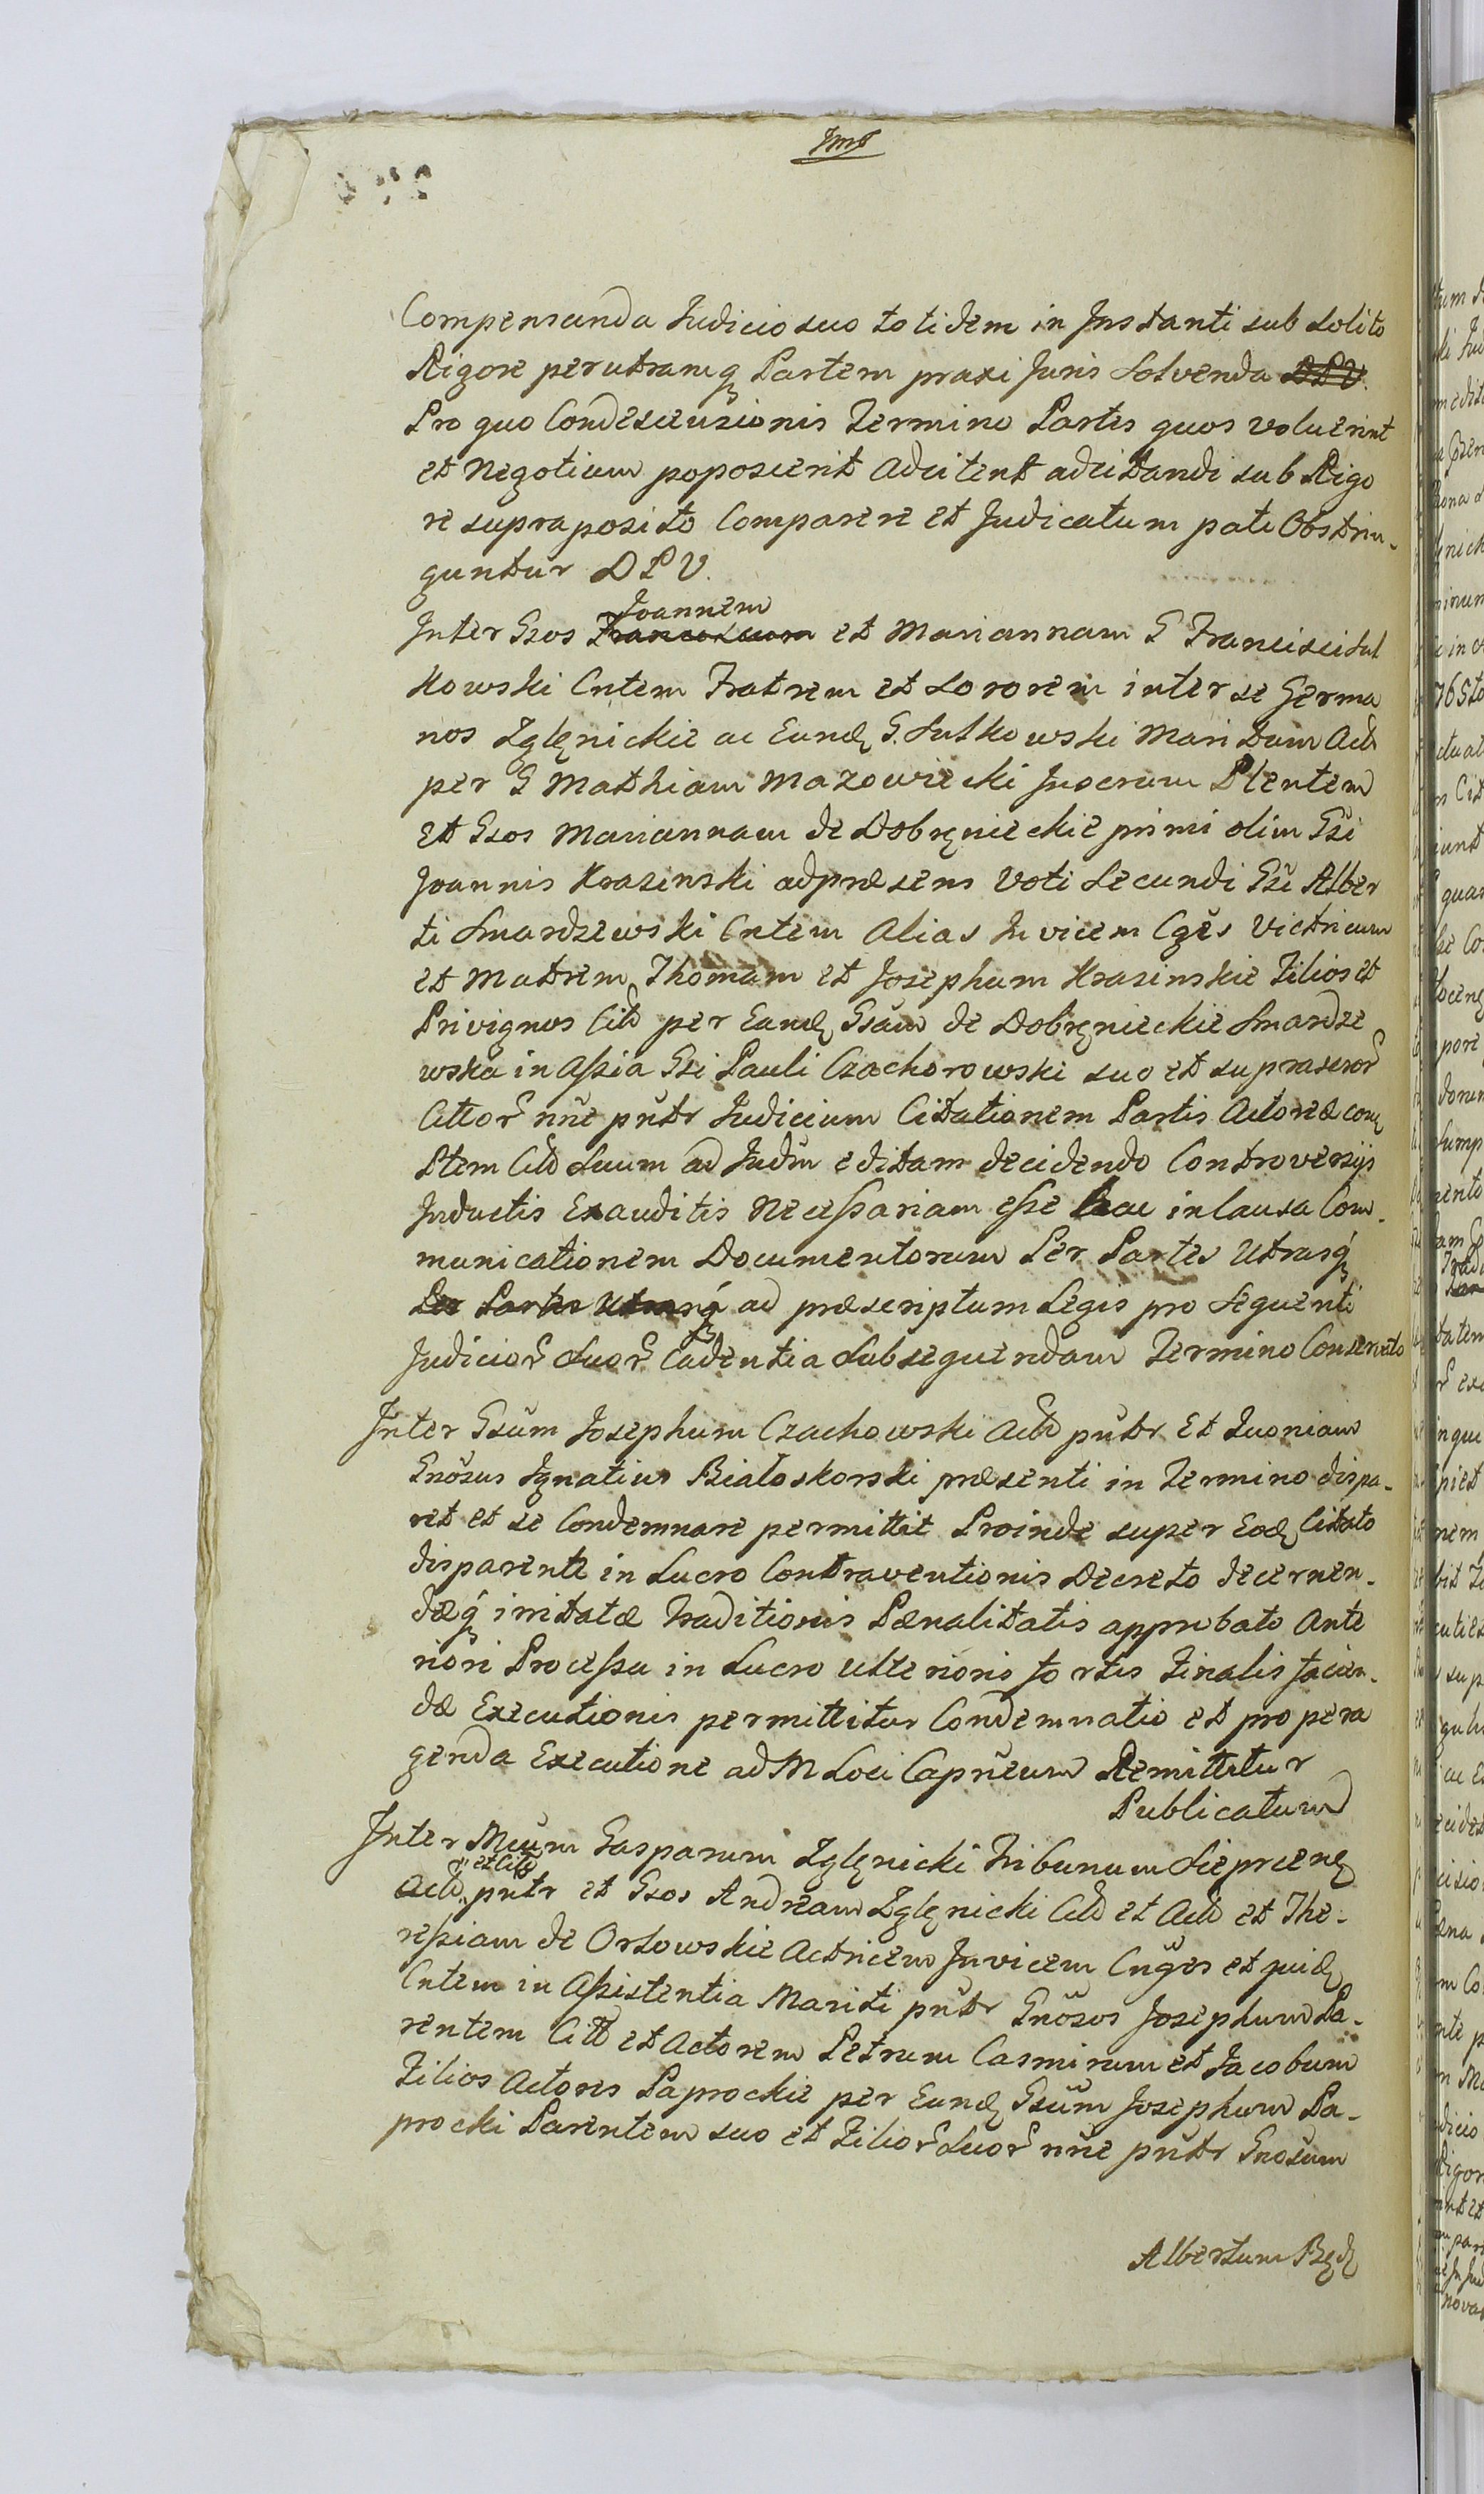 Compensanda Judicio suo totidem in Instanti sub solito
Rigore per utramq Partem praxi Juris solvenda DPV.
Pro quo Condescensionis Termino Partes quos voluerint
et Negotium poposcerit adcitent adcitandi sub Rigo
re supraposito Comparere et Judicatum pati Obstrin-
guntur DPV.
Joannem
Inter Gsos Franciscum et Mariannam G Francisci Sut
kowski Cntem Fratrem et Sororem inter se Germa
nos Zglęnickie ac Eund G. Sutkowski Maritum Act
per G Mathiam Mazowiecki Juoerum Plentem
et Gsos Mariannam de Dobręnieckie primi olim Gsi
Joannis Krasinski adpræsens Voti Secundi Gsi Alber
ti Smardzewski Cntem Alias Invicem Cgēs Victricum
et Matrem Thomam et Josephum Krasinskie Filios et
Privignos Citt per Eand Gsām de Dobręnieckie Smardze
wska in Assia Gsi Pauli Czachorowski suo et supraseror
Cittor nñe pñtr Judicium Citationem Partis Actoreæ con
Ptem Citt Suum ad Judm editam decidendo Controversijs
Inductis Exauditis Necessariam esse hac in Causa Com-
municationem Documentorum Per Partes Utrasq
Per Partes Utrasq ad præscriptum Legis pro Sequenti
Judicior Suor Cadentia Subsequendam Termino Conservato
Inter Gsūm Josephum Czachowski Act pñtr Et Quoniam
Gnōsus Ignatius Białoskorski præsenti in Termino dispa-
ret et se Condemnare permittit Proinde super Eod Citato
disparente in Lucro Contraventionis Decreto decernen-
dæq irritatæ Traditionis Pænalitatis approbato Ante
riori Processu in Lucro Ulterioris fortis Finalis facien-
dæ Executionis permittitur Condemnatio et pro pera
genda Executione ad M Loci Capñeum Remittitur
Publicatum
Inter Mcum Gasparum Zglęnicki Tribunum Sieprcen
et Citt
Act pñtr et Gsos Andream Zglęnicki Citt et Act et The-
ressiam de Orłowskie Actricem Invicem Cnges et quid
Cntem in Assistentia Mariti pñtr Gnōsos Josephum Pa-
rentem Citt et Actorem Petrum Casmirum et Jacobum
Filios Actores Paprockie per Eund Gsūm Josephum Pa-
procki Parentem suo et Filior Suor nñe pñtr Gnosum
Albertum Będ